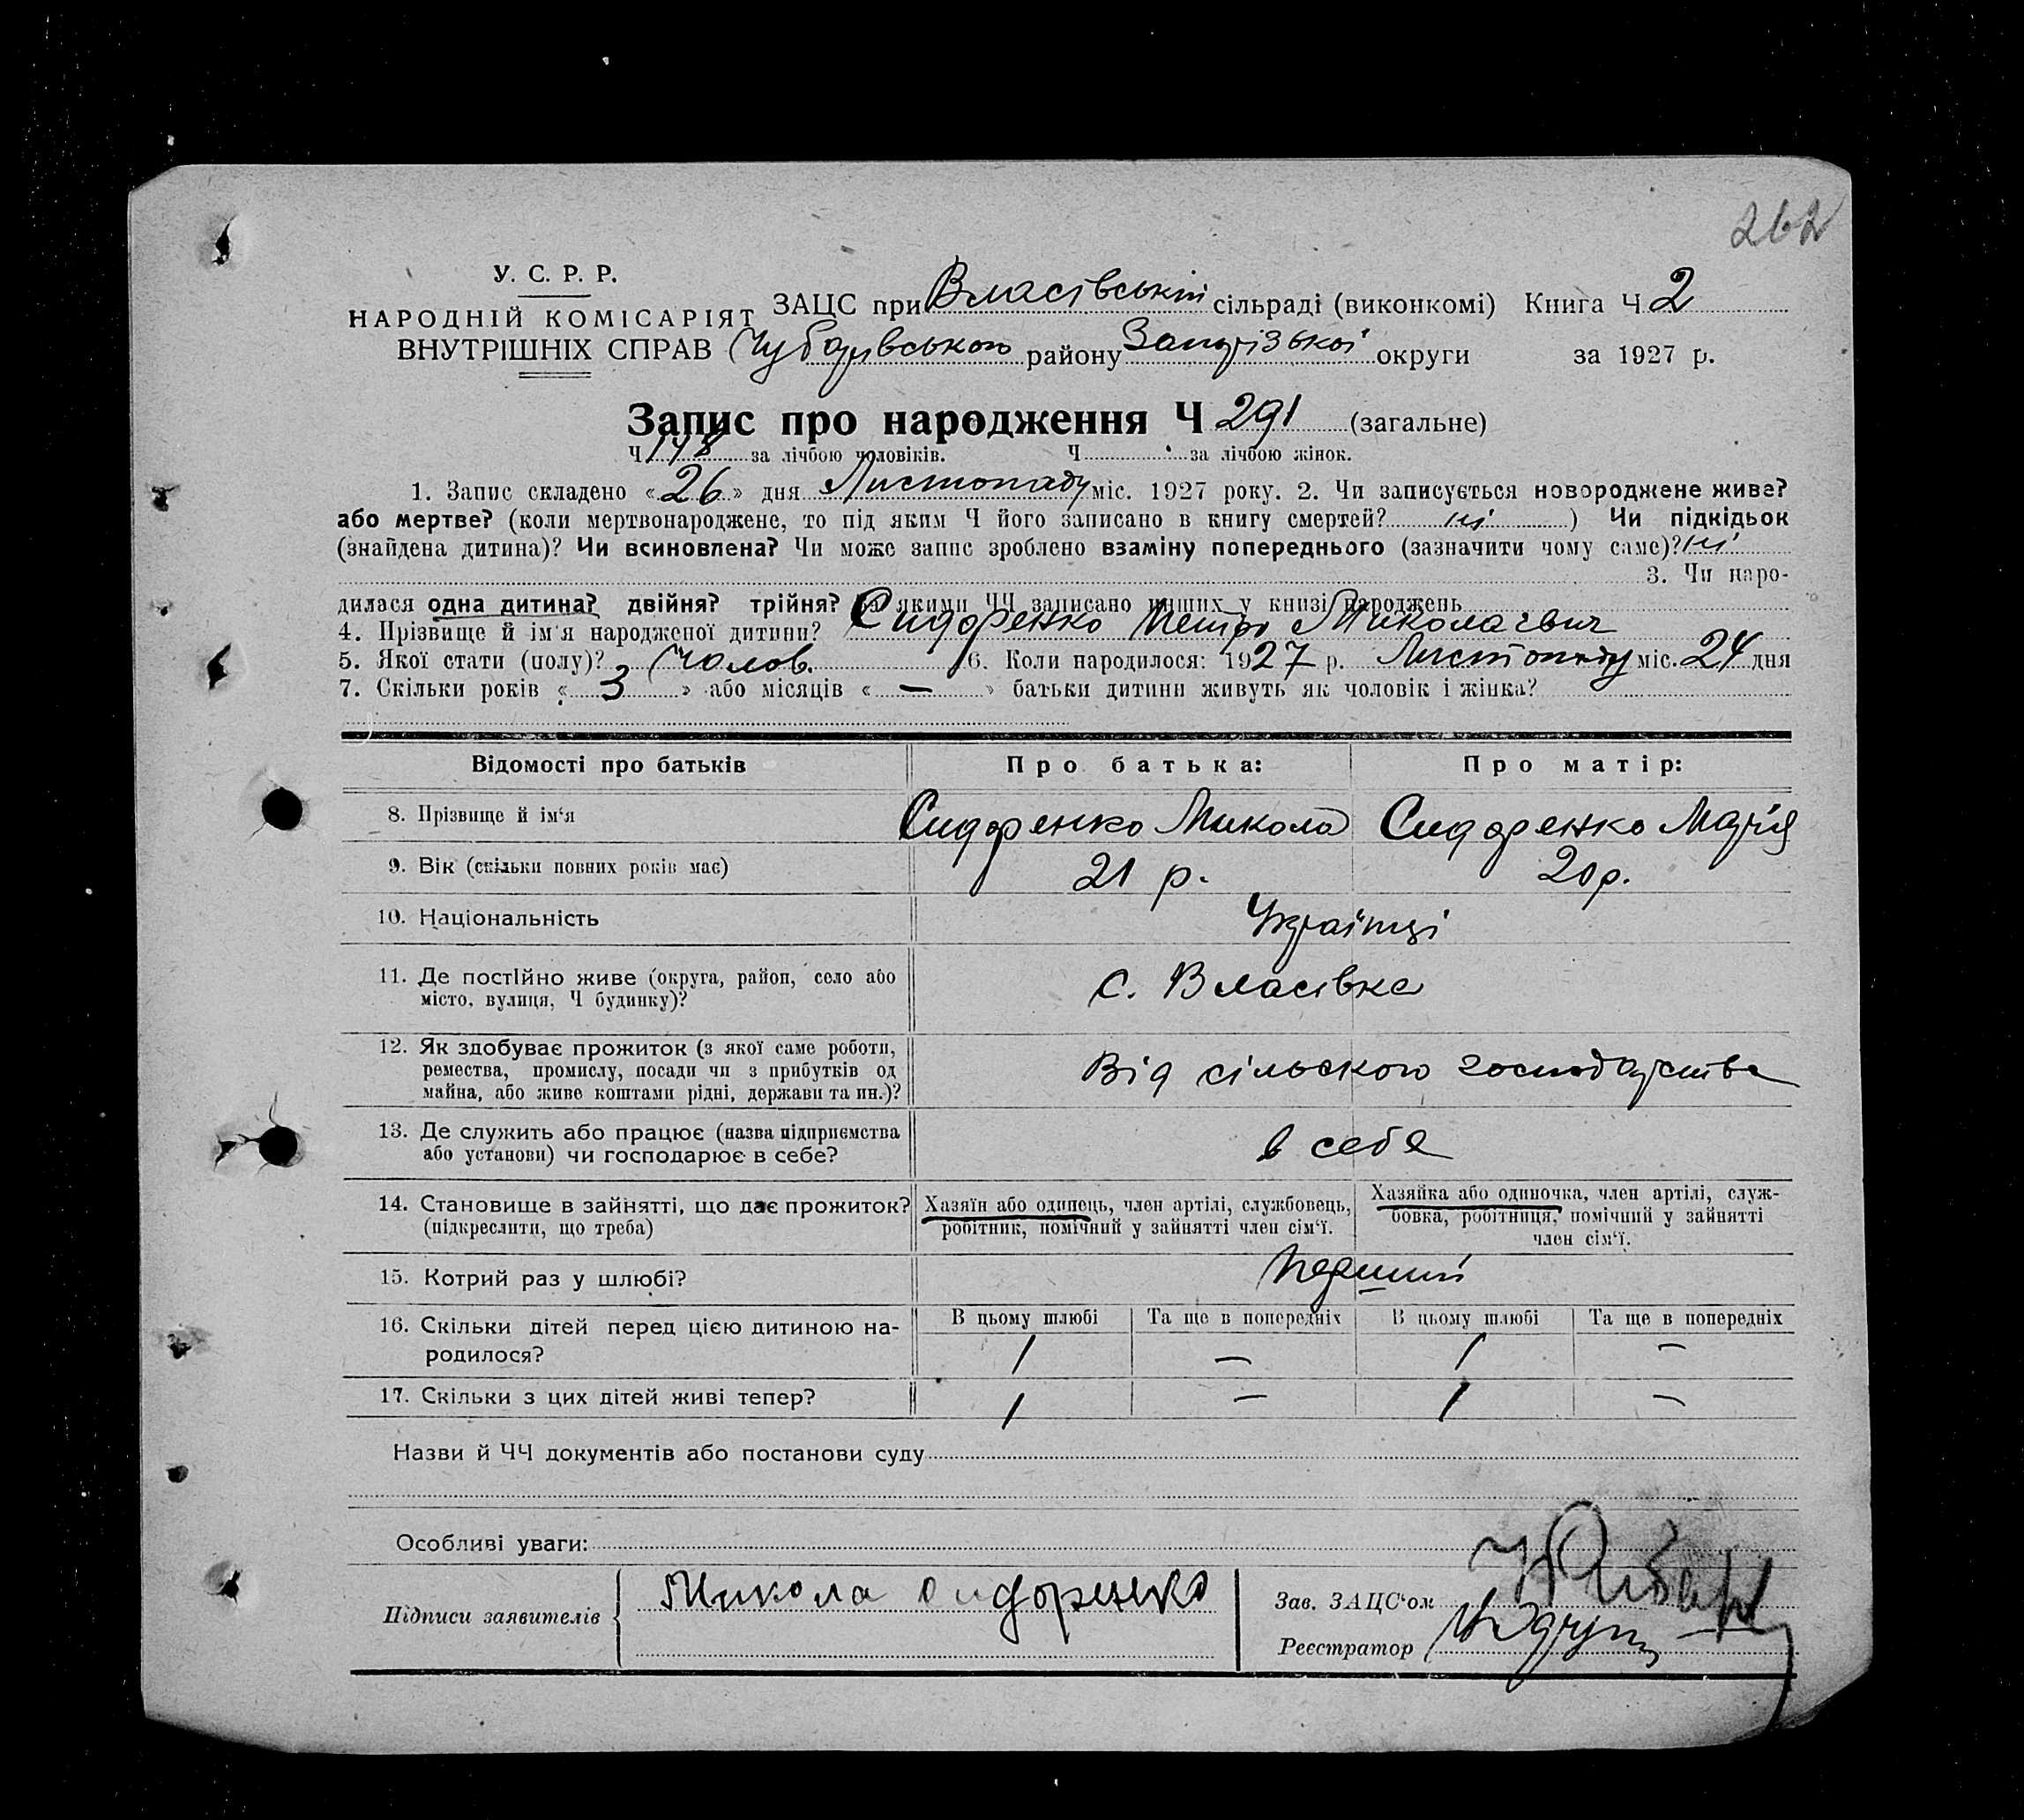 262
У. С. Р. Р.
НАРОДНІЙ КОМІСАРІЯТ
ВНУТРІШНІХ СПРАВ
ЗАЦС при Власівській сільраді (виконкомі) Книга Ч 2
Чубарівського району Запорізької округи за 1927 р.
Запис про народження Ч 291 (загальне)
Ч 148 за лічбою чоловіків. Ч за лічбою жінок.
1. Запис складено «26» дня Листопаду міс. 1927 року. 2. Чи записується новороджене живе?
або мертве? (коли мертвонароджене, то під яким Ч його записано в книгу смертей? ні ) Чи підкідьок
(знайдена дитина)? Чи всиновлена? Чи може запис зроблено взаміну попереднього (зазначити чому саме)? ні
3. Чи наро-
дилася одна дитина? двійня? трійня? За якими ЧЧ записано инших у книзі народжень
4. Прізвище й ім'я народженої дитини? Сидоренко Петро Миколаєвич
5. Якої стати (полу)? Чолов. 6. Коли народилося: 1927 р. Листопаду міс. 24 дня
7. Скільки років « 3 » або місяців « — » батьки дитини живуть як чоловік і жінка?
Відомості про батьків Про батька: Про матір:
8. Прізвище й ім'я Сидоренко Микола Сидоренко Марія
9. Вік (скільки повних років має) 21 р. 20 р.
10. Національність Українці
11. Де постійно живе (округа, район, село або
місто, вулиця, Ч будинку)? с. Власівка
12. Як здобуває прожиток (з якої саме роботи,
ремества, промислу, посади чи з прибутків од
майна, або живе коштами рідні, держави та ин.)? Від сільского господарства
13. Де служить або працює (назва підприємства
або установи) чи господарює в себе? в себе
14. Становище в зайнятті, що дає прожиток?
(підкреслити, що треба)
Хазяїн або одинець, член артілі, службовець,
робітник, помічний у зайнятті член сім'ї.
Хазяйка або одиночка, член артілі, служ-
бовка, робітниця, помічний у зайнятті
член сім'ї.
15. Котрий раз у шлюбі? Перший
16. Скільки дітей перед цією дитиною на-
родилося?
В цьому шлюбі Та ще в попередніх В цьому шлюбі Та ще в попередніх
1 — 1 —
17. Скільки з цих дітей живі тепер? 1 — 1 —
Назви й ЧЧ документів або постанови суду
Особливі уваги:
Підписи заявителів Микола Сидоренко
Зав. ЗАЦС'ом
Реєстратор